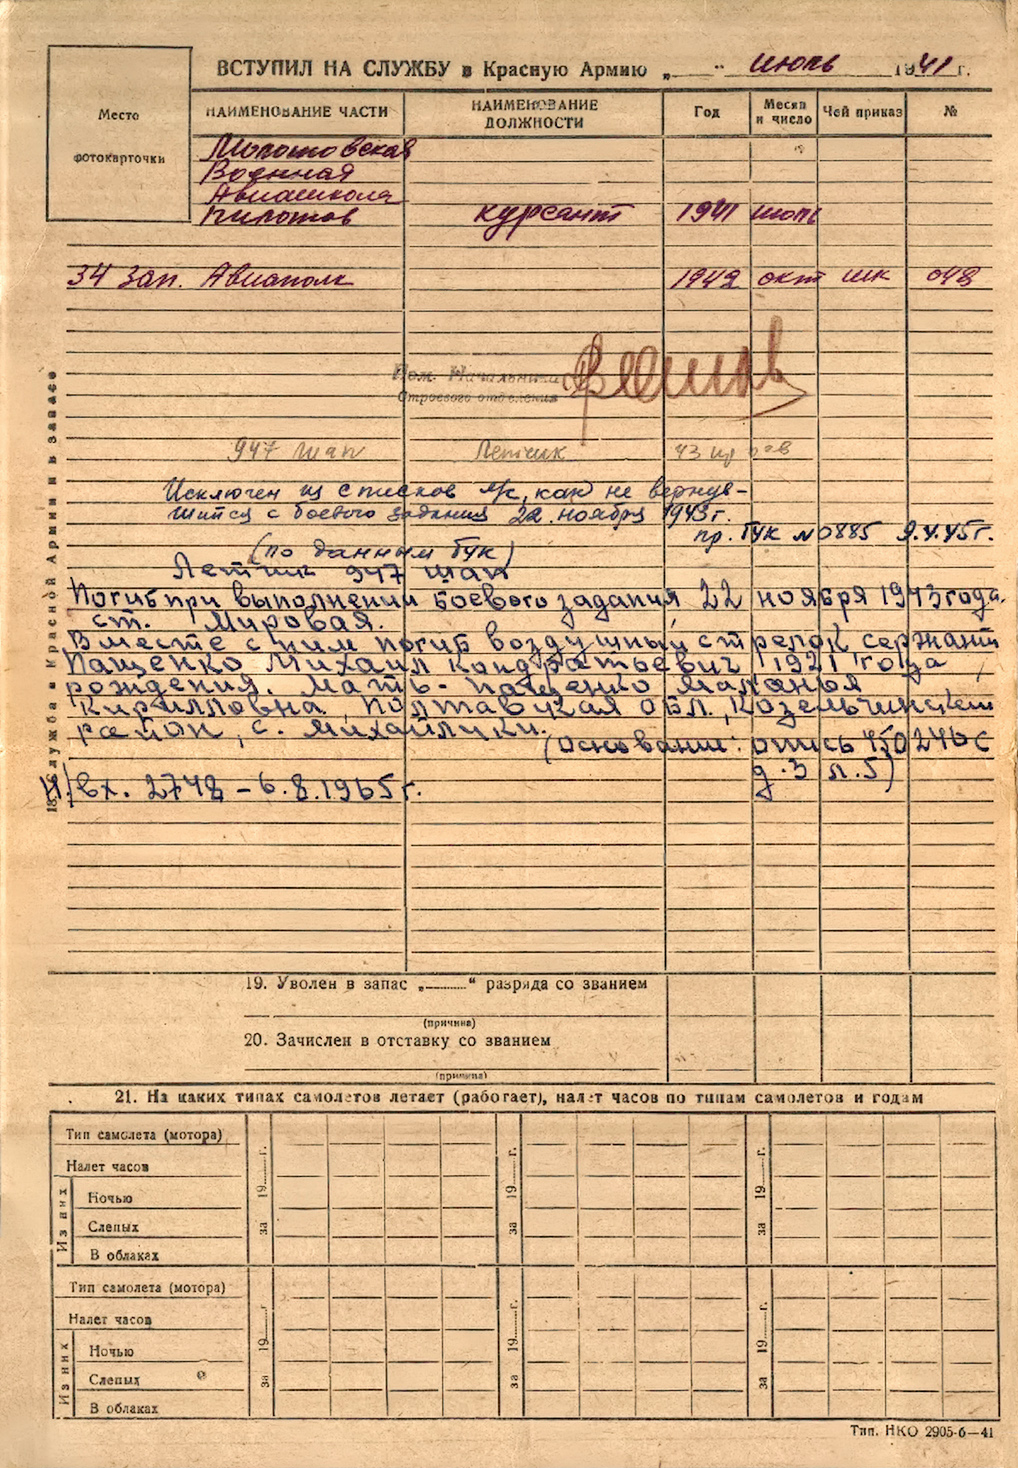 ВСТУПИЛ НА СЛУЖБУ в Красную Армию „___" июль 1941 г.
Место
фотокарточки
НАИМЕНОВАНИЕ ЧАСТИ
НАИМЕНОВАНИЕ ДОЛЖНОСТИ
Год
Месяц и число
Чей приказ
№
Молотовская
Военная
Авиашкола
Пилотов курсант 1941 июль
34 зап. Авиаполк 1942 окт шк 048
Пом. Начальника
Строевого отделения
947 шап Летчик 43
Исключен из списков к/с, как не вернув-
шийся с боевого задания 22 ноября 1943 г.
пр. ГУК №0885 9.4.45г.
(по данным ГУК)
Летчик 947 шап
Погиб при выполнении боевого задания 22 ноября 1943 года.
ст. Мировая.
Вместе с ним погиб воздушный стрелок, сержант
Пащенко Михаил Кондратьевич, 1921 года
рождения. Мать - Пащенко Маланья
Кирилловна, Полтавская обл., Козельчинский
район, с. Михайлики.
(основание: опись 450246с
д.3 л.5)
вх. 2748 - 6.8.1965г.
18. Служба в Красной Армии и в запасе
19. Уволен в запас „___" разряда со званием
(причина)
20. Зачислен в отставку со званием
(причина)
21. На каких типах самолетов летает (работает), налет часов по типам самолетов и годам
Тип самолета (мотора)
Налет часов
Из них
Ночью
Слепых
В облаках
за 19___г.
за 19___г.
за 19___г.
Тип самолета (мотора)
Налет часов
Из них
Ночью
Слепых
В облаках
за 19___г.
за 19___г.
за 19___г.
Тип. НКО 2905-6—41